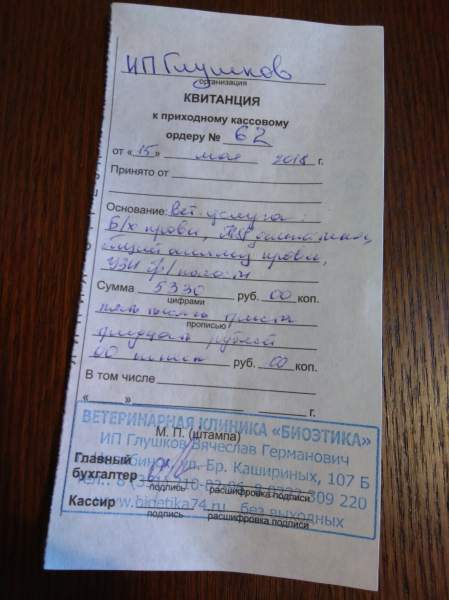 ИП Глушков
организация
КВИТАНЦИЯ
к приходному кассовому
ордеру № 62
от «15» мая 2018 г.
Принято от
Основание: Вет. услуга:
Б/х крови,
крови,
УЗИ бр/полости
Сумма 5330 руб. 00 коп.
цифрами
пять тысяч триста
прописью
тридцать рублей
00 копеек руб. 00 коп.
В том числе
« » г.
ВЕТЕРИНАРНАЯ КЛИНИКА «БИОЭТИКА»
М. П. (штампа)
ИП Глушков Вячеслав Германович
Главный
ул. Бр. Кашириных, 107 Б
бухгалтер
309 220
подпись расшифровка подписи
www.bioetika74.ru без выходных
Кассир
подпись расшифровка подписи